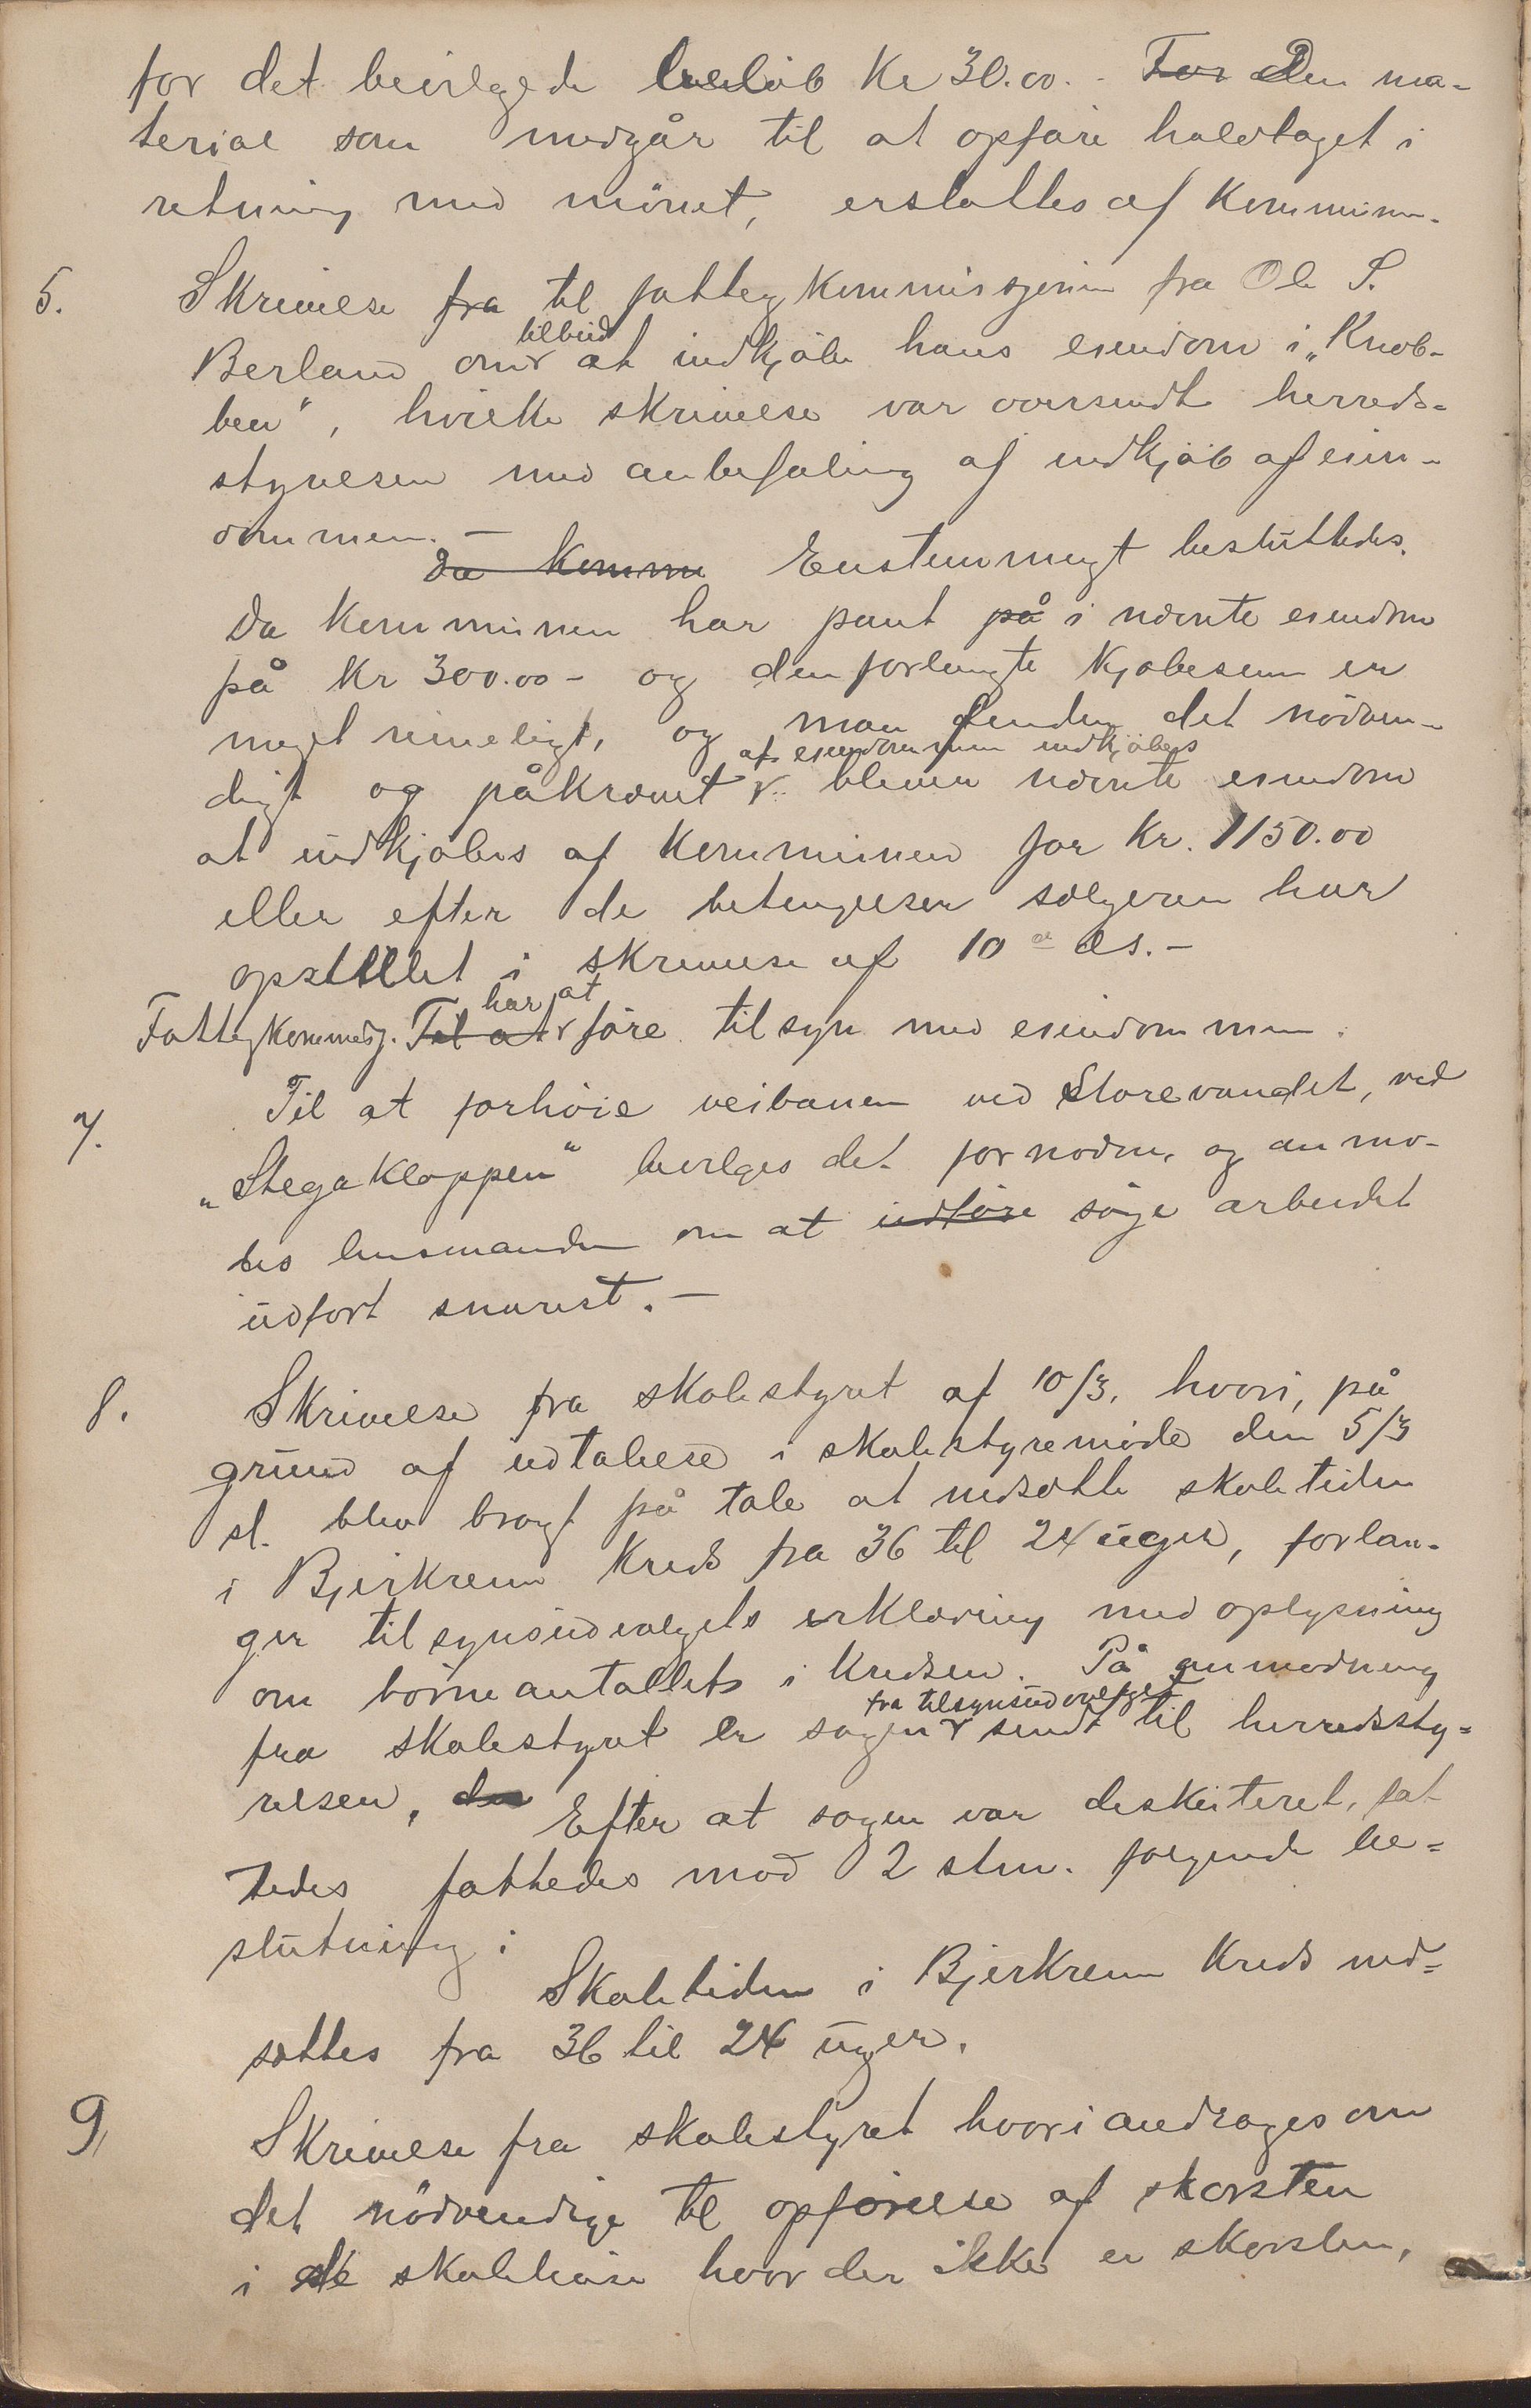 for det bevilgede beløb Kr 30.00. - For Den ma-
terial som medgår til at opføre halvtaget i
retning med mønet, erstattes af Kommunen.
5. Skrivelse fra til fattigkommissjonen fra Ole S.
tilbud
Berland om at indkjøbe hans eiendom i „Knob-
ben“, hvilke skrivelse var oversendt herreds-
styrelsen med anbefaling af indkjøb af eien-
dommen. -
Da Kommu Enstemmigt besluttedes.
Da Kommunen har pant på i nævnte eiendom
på Kr 300.00 - og den forlangte Kjøbesum er
meget rimeligt, og man finder det nødven-
at eiendommen indkjøbes
digt og påkrævet blever nævnte eiendom
at indkjøbes af Kommunen for Kr. 1150.00
eller efter de betingelser sælgeren har
opstillet i skrivelse af 10de ds. -
har at
Fattigkommisj. Til at føre tilsyn med eiendommen.
7. Til at forhøie veibanen ved Storevandet, ved
„Stegakloppen“ bevilges det fornødne, og anmo-
des lensmanden om at udføre søge arbeidet
udført snarest. -
8. Skrivelse fra skolestyret af 10/3, hvori, på
grund af udtalelse i skolestyremøde den 5/3
sl. blev bragt på tale at nedsætte skoletiden
i Bjerkreim Kreds fra 36 til 24 uger, forlan-
ger tilsynsudvalgets erklæring med oplysning
om børneantallets i Kredsen. På anmodning
fra tilsynsudvalget
fra skolestyret er sagen sendt til herredssty-
relsen, den Efter at sagen var diskuteret, fat
tedes fattedes mod 2 stm. følgende be-
slutning:
Skoletiden i Bjerkreim Kreds ned-
sættes fra 36 til 24 uger.
9, Skrivelse fra skolestyret hvori andrages om
det nødvendige til opførelse af skorsten
i de skolehuse hvor der ikke er skorsten,